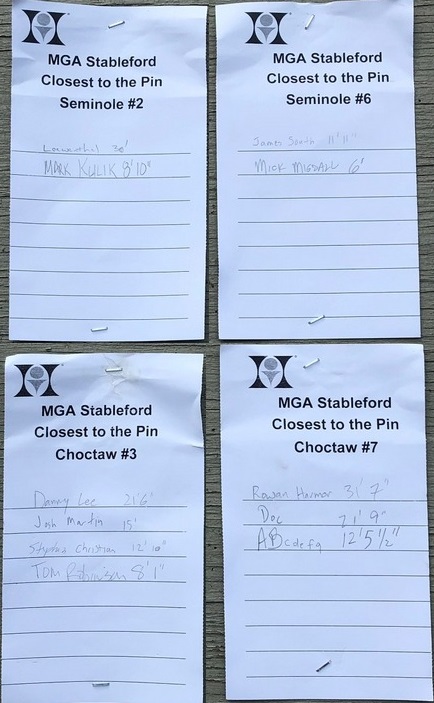 MGA Stableford
Closest to the Pin
Seminole #2
30'
MARK KULIK 8'10"
MGA Stableford
Closest to the Pin
Seminole #6
James South 11'11"
MICK MIGDALL 6'
MGA Stableford
Closest to the Pin
Choctaw #3
Danny Lee 21'6"
Josh Martin 15'
Stephen Christian 12'10"
TOM Robinson 8'1"
MGA Stableford
Closest to the Pin
Choctaw #7
Rowan Harmar 31'7"
Doc 21'9"
ABcdefg 12'5½"